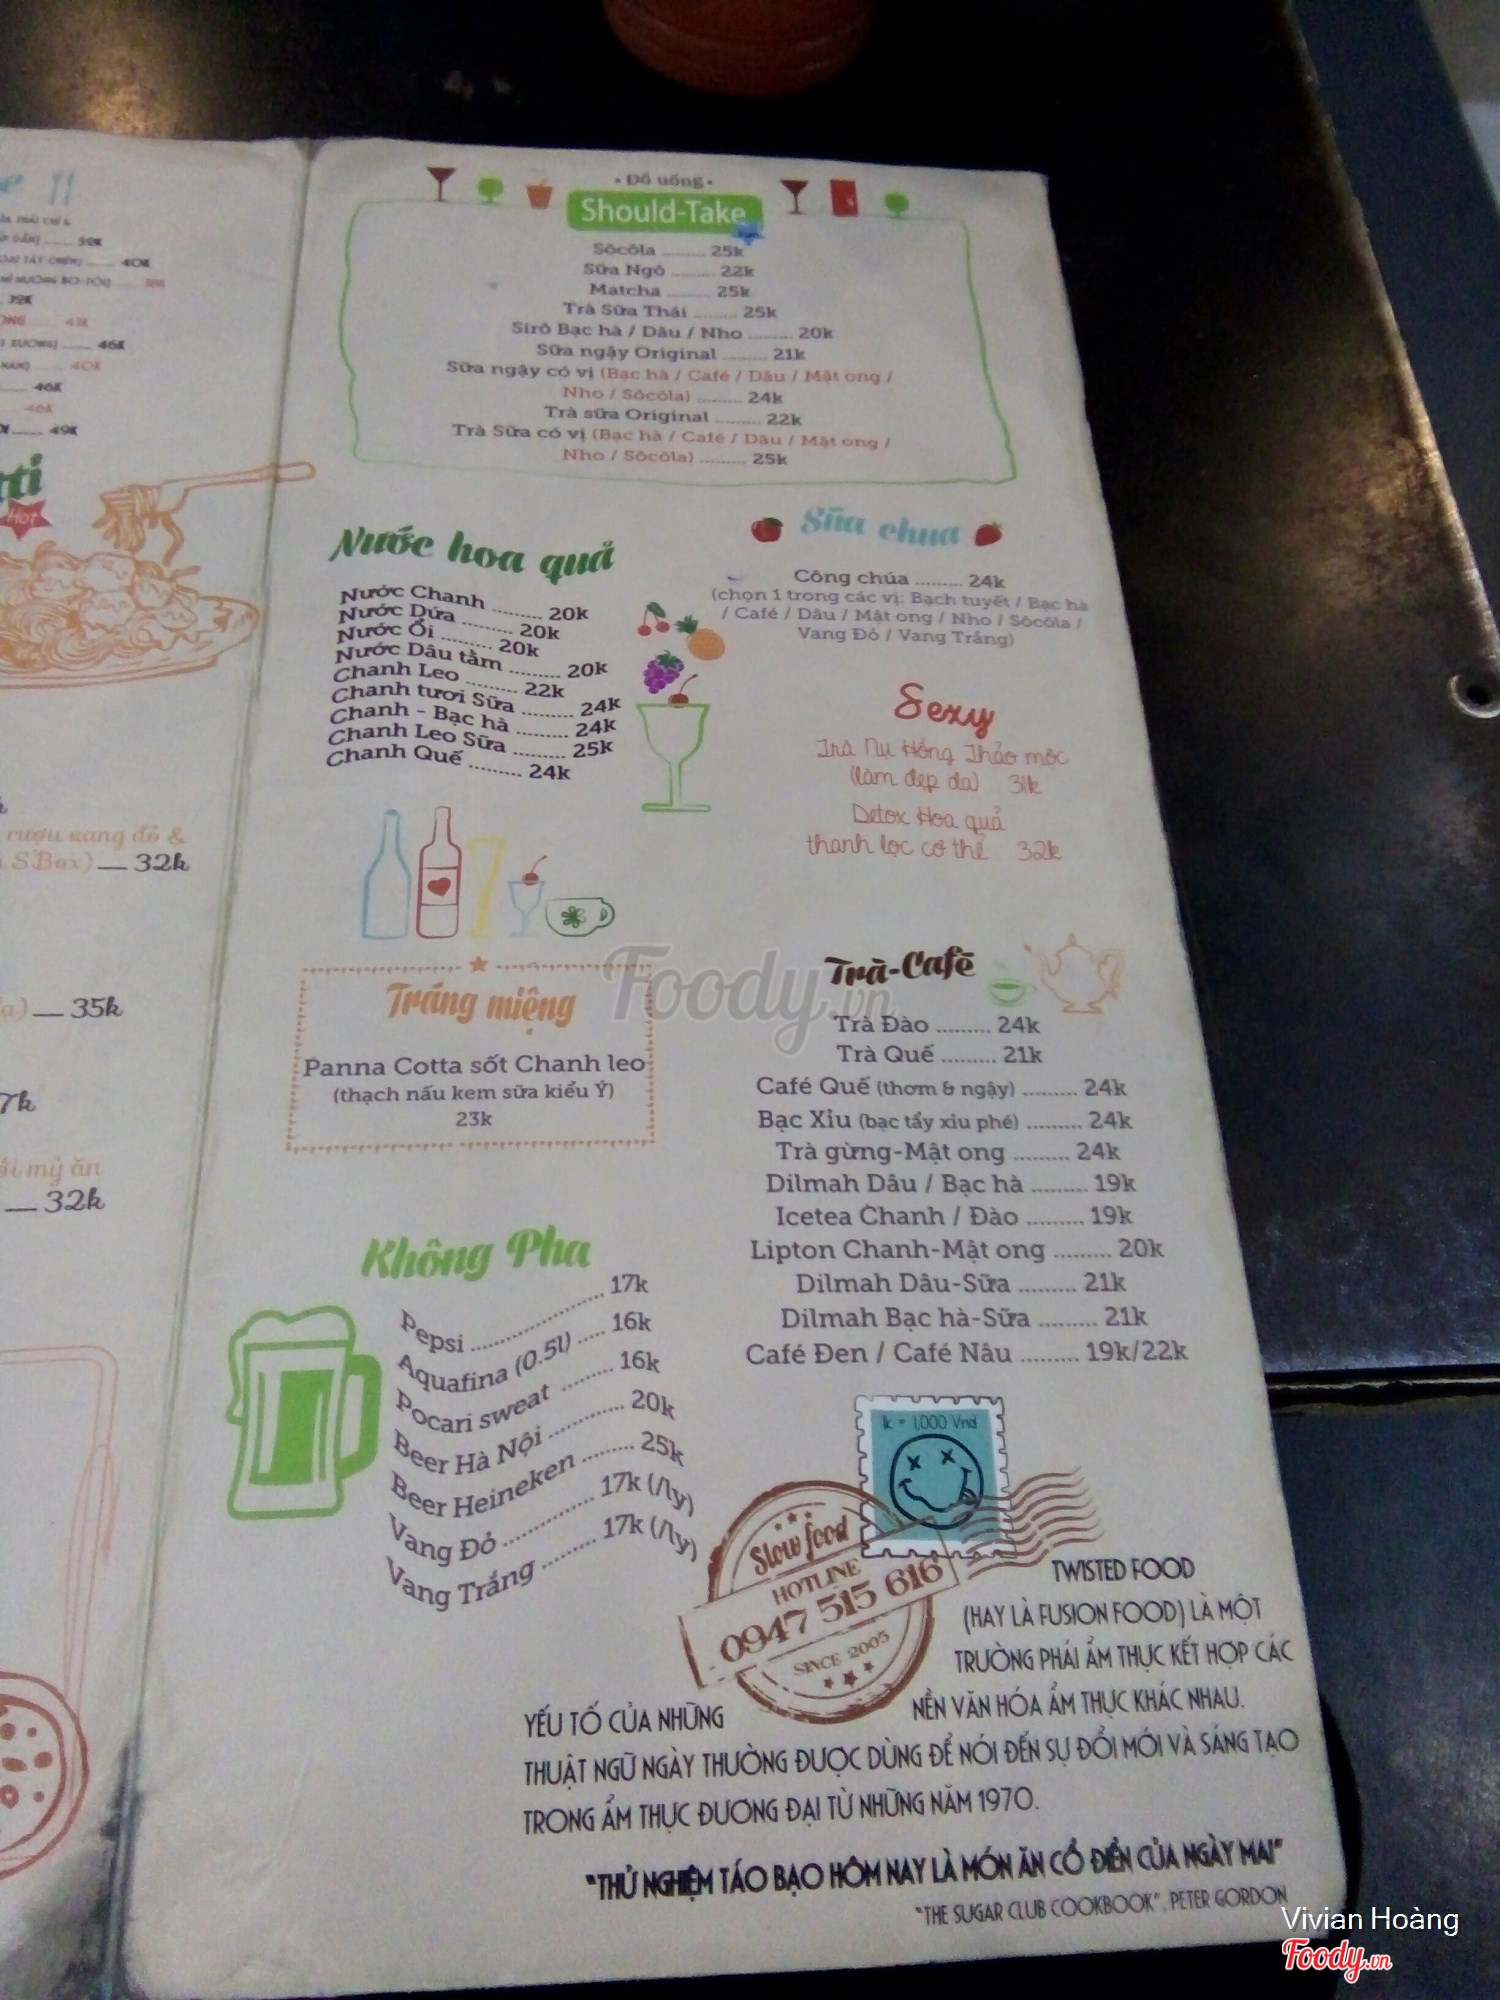 32K
40K
72K
46K
40K
46K
46K
49K
Hot
rượu vang đỏ &
S'Box) 32k
35k
7k
mỳ ăn
32k
• Đồ uống •
Should-Take
Sôcôla ......... 25k
Sữa Ngô ......... 22k
Matcha ......... 25k
Trà Sữa Thái ......... 25k
Sirô Bạc hà / Dâu / Nho ......... 20k
Sữa ngậy Original ......... 21k
Sữa ngậy có vị (Bạc hà / Café / Dâu / Mật ong /
Nho / Sôcôla) ......... 24k
Trà sữa Original ......... 22k
Trà Sữa có vị (Bạc hà / Café / Dâu / Mật ong /
Nho / Sôcôla) ......... 25k
Nước hoa quả
Nước Chanh ......... 20k
Nước Dứa ......... 20k
Nước Ổi ......... 20k
Nước Dâu tằm ......... 20k
Chanh Leo ......... 22k
Chanh tươi Sữa ......... 24k
Chanh - Bạc hà ......... 24k
Chanh Leo Sữa ......... 25k
Chanh Quế ......... 24k
Sữa chua
Công chúa ......... 24k
(chọn 1 trong các vị: Bạch tuyết / Bạc hà
/ Café / Dâu / Mật ong / Nho / Sôcôla /
Vang Đỏ / Vang Trắng)
Sexy
Trà Nụ Hồng Thảo mộc
(làm đẹp da) 31k
Detox Hoa quả
thanh lọc cơ thể 32k
Tráng miệng
Panna Cotta sốt Chanh leo
(thạch nấu kem sữa kiểu Ý)
23k
Foody.vn
Trà-Café
Trà Đào ......... 24k
Trà Quế ......... 21k
Café Quế (thơm & ngậy) ......... 24k
Bạc Xỉu (bạc tẩy xỉu phé) ......... 24k
Trà gừng-Mật ong ......... 24k
Dilmah Dâu / Bạc hà ......... 19k
Icetea Chanh / Đào ......... 19k
Lipton Chanh-Mật ong ......... 20k
Dilmah Dâu-Sữa ......... 21k
Dilmah Bạc hà-Sữa ......... 21k
Café Đen / Café Nâu ......... 19k/22k
Không Pha
Pepsi ......... 17k
Aquafina (0.5l) ..... 16k
Pocari sweat ........ 16k
Beer Hà Nội ......... 20k
Beer Heineken ......... 25k
Vang Đỏ ......... 17k (/ly)
Vang Trắng ......... 17k (/ly)
1k = 1,000 Vnd
Slow food
HOTLINE
0947 515 616
SINCE 2005
TWISTED FOOD
(HAY LÀ FUSION FOOD) LÀ MỘT
TRƯỜNG PHÁI ẨM THỰC KẾT HỢP CÁC
YẾU TỐ CỦA NHỮNG NỀN VĂN HÓA ẨM THỰC KHÁC NHAU.
THUẬT NGỮ NGÀY THƯỜNG ĐƯỢC DÙNG ĐỂ NÓI ĐẾN SỰ ĐỔI MỚI VÀ SÁNG TẠO
TRONG ẨM THỰC ĐƯƠNG ĐẠI TỪ NHỮNG NĂM 1970.
"THỬ NGHIỆM TÁO BẠO HÔM NAY LÀ MÓN ĂN CỔ ĐIỂN CỦA NGÀY MAI"
"THE SUGAR CLUB COOKBOOK", PETER GORDON
Vivian Hoàng
Foody.vn